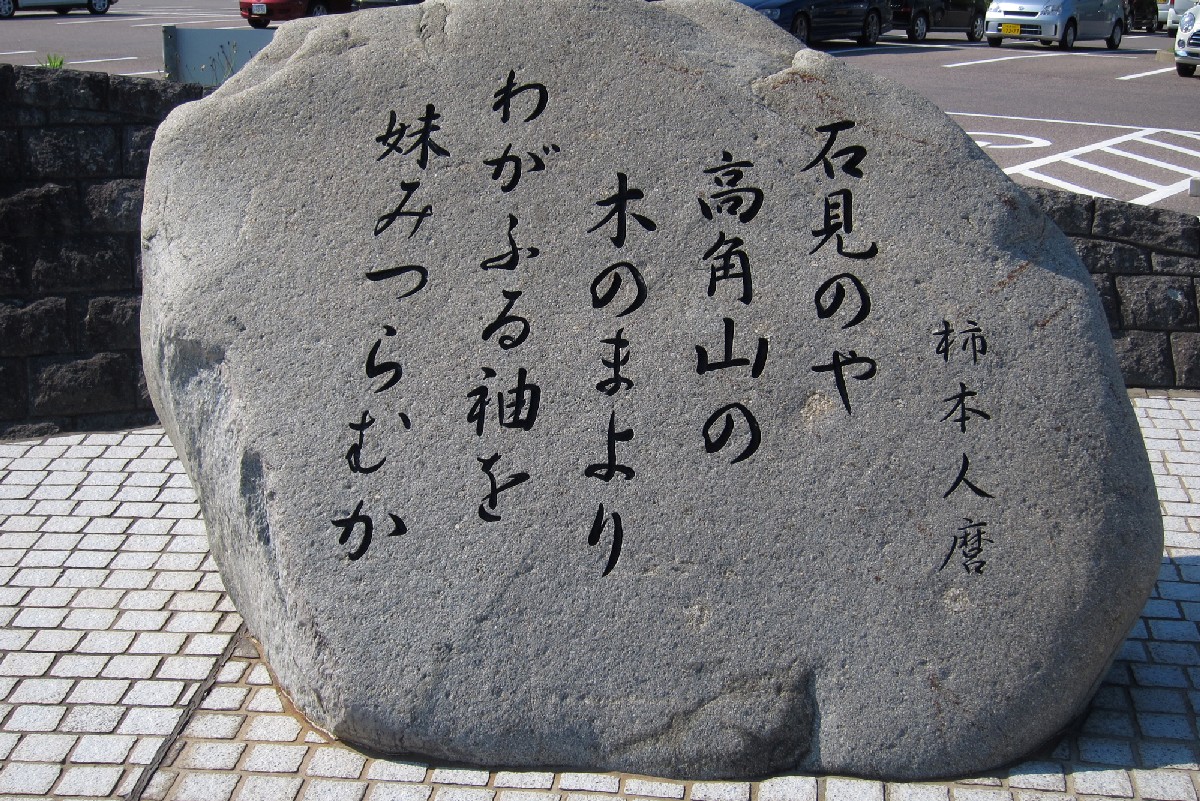 柿本人麿
石見のや
高角山の
木のまより
わがふる袖を
妹みつらむか